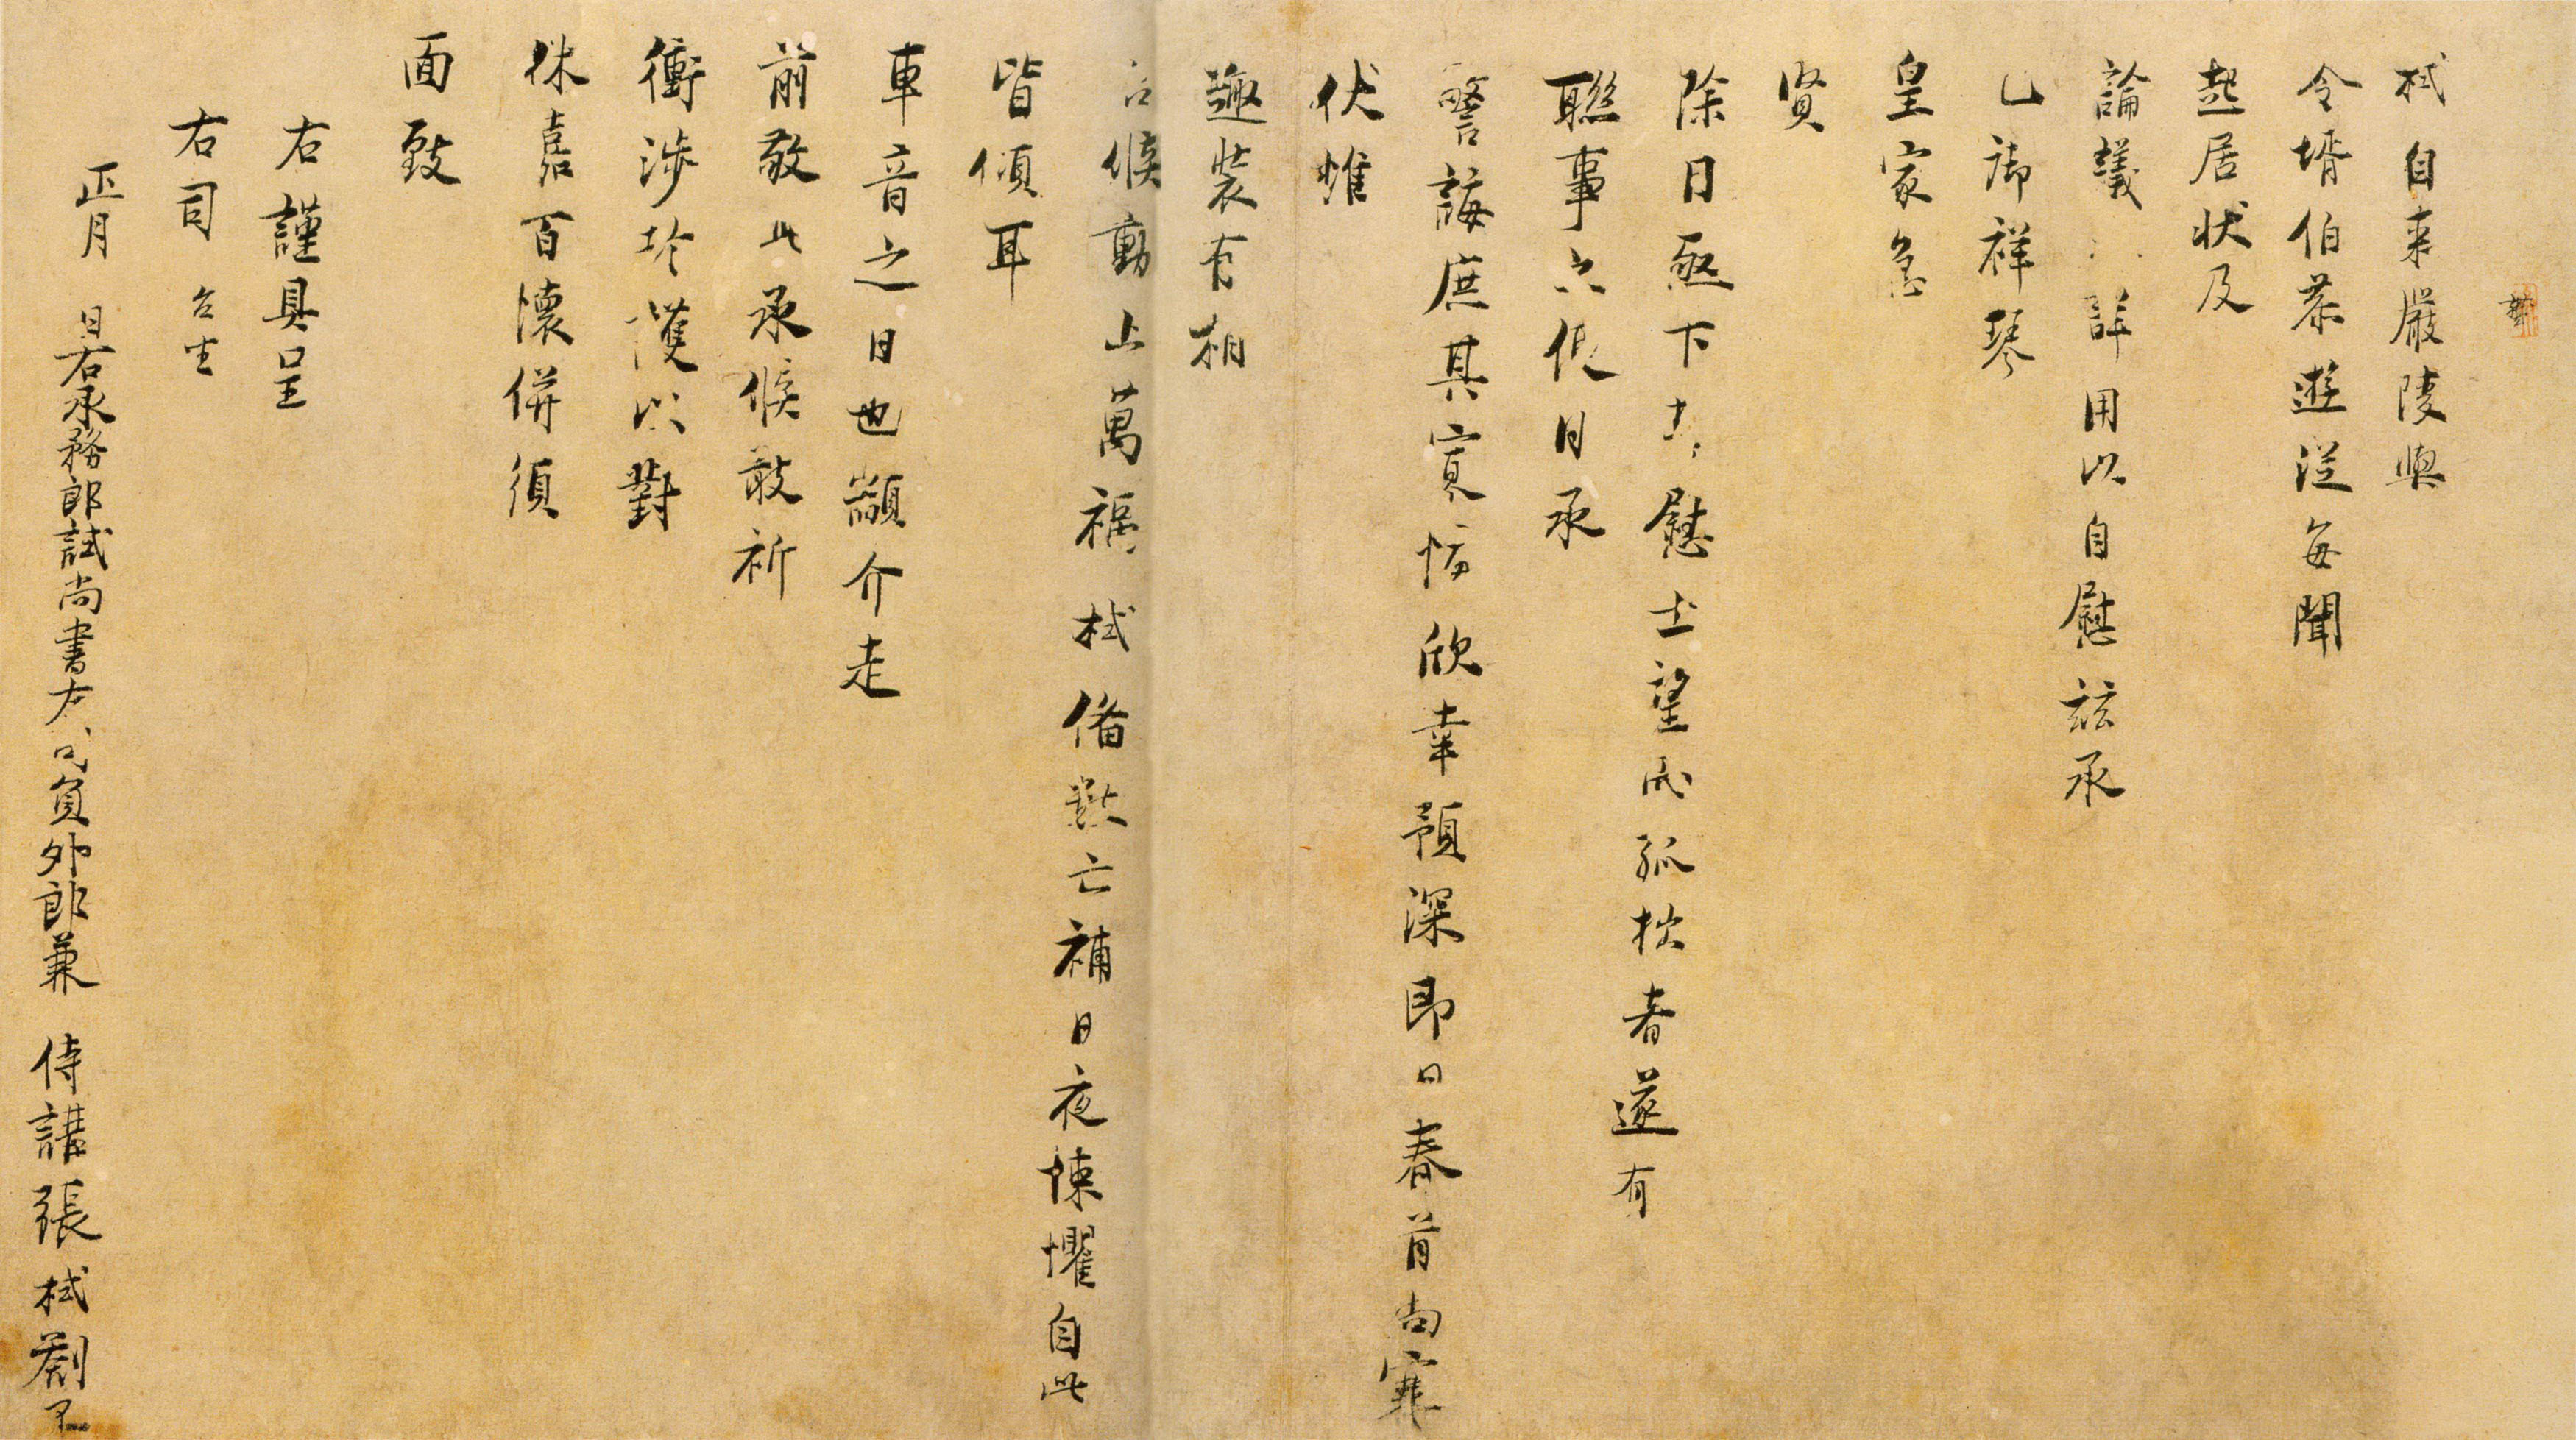 栻自來嚴陵與
令壻伯恭遊從每聞
起居狀及
論議詳用以自慰茲承
已御祥琴
皇家急
賢
除目亟下慰士望而孤拙者遂有
聯事之便日承
警誨庶其寡悔欣幸預深即日春首尚寒
伏惟
趣裝有相
台候動止萬福栻備數亡補日夜悚懼自此
皆傾耳
車音之日也顓介走
前敬此承候敢祈
衝涉珍護以對
休嘉百懷併須
面致
右謹具呈
右司台坐
正月 日右承務郎試尚書左司員外郎兼 侍講張栻劄子